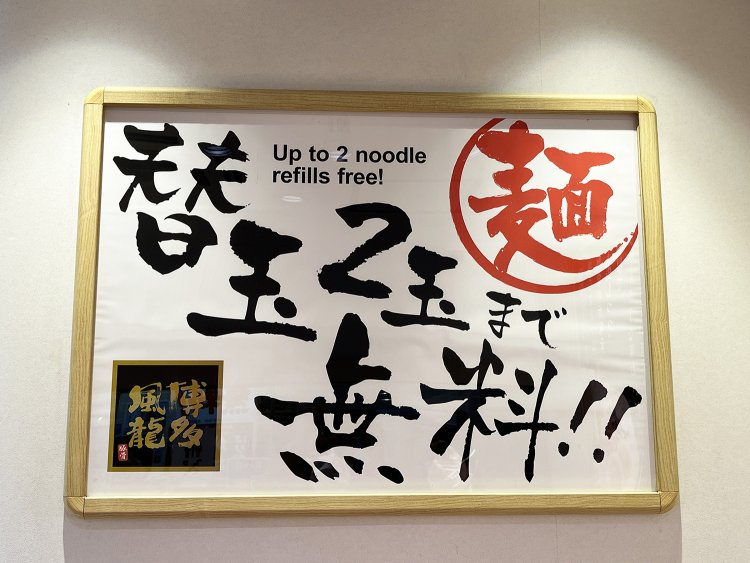 Up to 2 noodle
refills free!
麺
替玉2玉まで
無料!!
博多
風龍